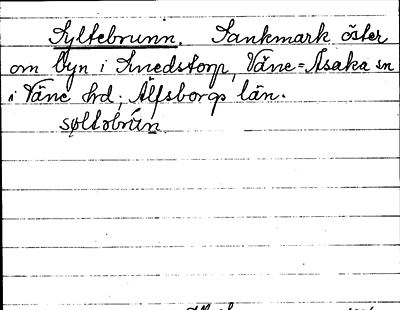 Syltebrunn. Sankmark öster
om byn i Smedstorp, Väne=Åsaka sn
i Väne hd; Älfsborgs län.